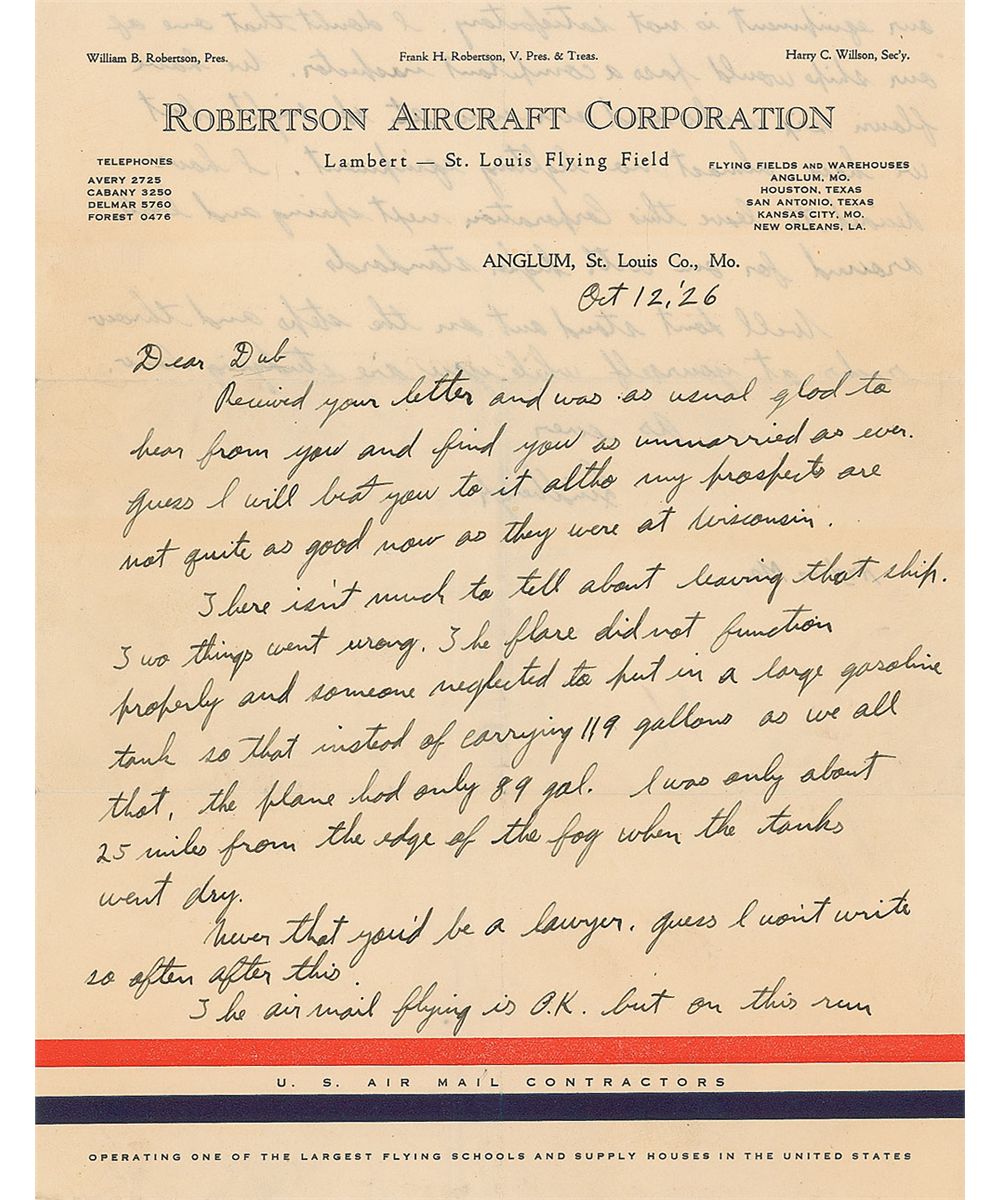 William B. Robertson, Pres.
Frank H. Robertson, V. Pres. & Treas.
Harry C. Willson, Sec'y.
ROBERTSON AIRCRAFT CORPORATION
Lambert — St. Louis Flying Field
TELEPHONES
AVERY 2725
CABANY 3250
DELMAR 5760
FOREST 0476
FLYING FIELDS AND WAREHOUSES
ANGLUM, MO.
HOUSTON, TEXAS
SAN ANTONIO, TEXAS
KANSAS CITY, MO.
NEW ORLEANS, LA.
ANGLUM, St. Louis Co., Mo.
Oct 12, '26
Dear Dub
Received your letter and was as usual glad to
hear from you and find you as unmarried as ever.
Guess I will beat you to it altho my prospects are
not quite as good now as they were at Wisconsin.
There isn't much to tell about leaving that ship.
Two things went wrong. The flare did not function
properly and someone neglected to put in a large gasoline
tank so that instead of carrying 119 gallons as we all
that, the plane had only 89 gal. I was only about
25 miles from the edge of the fog when the tanks
went dry.
Never that you'd be a lawyer. Guess I won't write
so often after this.
The air mail flying is O.K. but on this run
U. S. AIR MAIL CONTRACTORS
OPERATING ONE OF THE LARGEST FLYING SCHOOLS AND SUPPLY HOUSES IN THE UNITED STATES